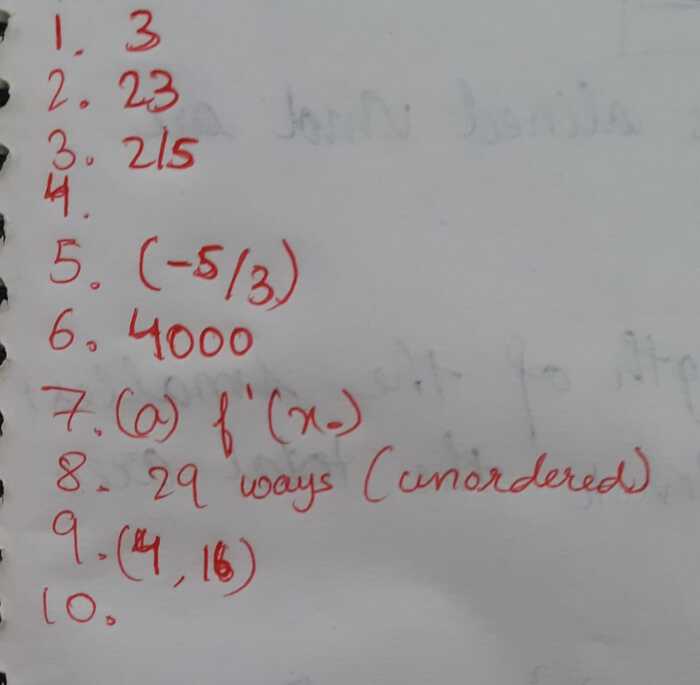 1. 3
2. 23
3. 215
4.
5. (-5/3)
6. 4000
7. (a) f'(x-)
8. 29 ways (unordered)
9. (4, 16)
10.